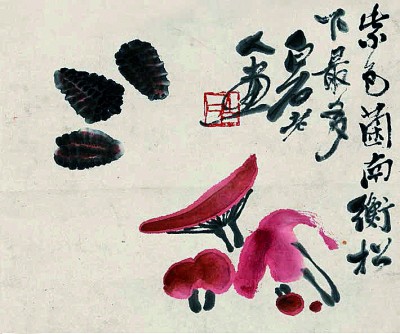 紫色菌南衡松
下最多
白石老
人畫